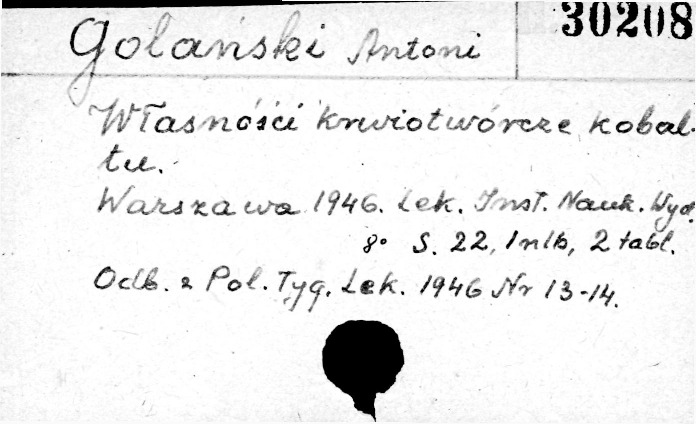 30208
Golański Antoni
Własnóści krwiotwórcze kobal-
tu.
Warszawa 1946. Lek. Inst. Nauk. Wyd.
8° S. 22, 1 nlb, 2 tabl.
Odb. z Pol. Tyg. Lek. 1946 Nr 13-14.